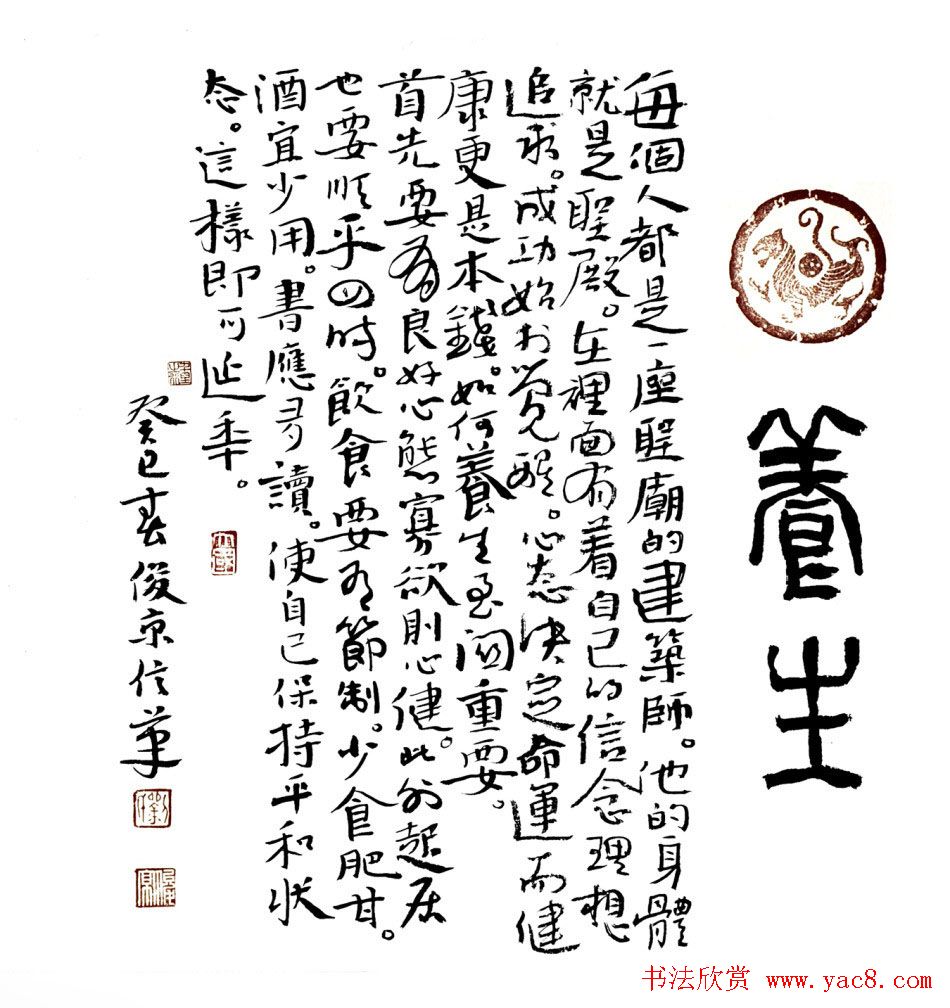 養生
每個人都是一座聖廟的建築師。他的身體
就是聖殿。在裡面有着自己的信念理想
追求。成功始於覺醒。心态决定命運而健
康更是本錢。如何養生至關重要。
首先要有良好心態寡欲則心健。此外起居
也要順乎四时。飲食要有節制。少食肥甘。
酒宜少用。書應多讀。使自己保持平和状
态。這樣即可延年。
癸巳春俊京信筆
书法欣赏 www.yac8.com